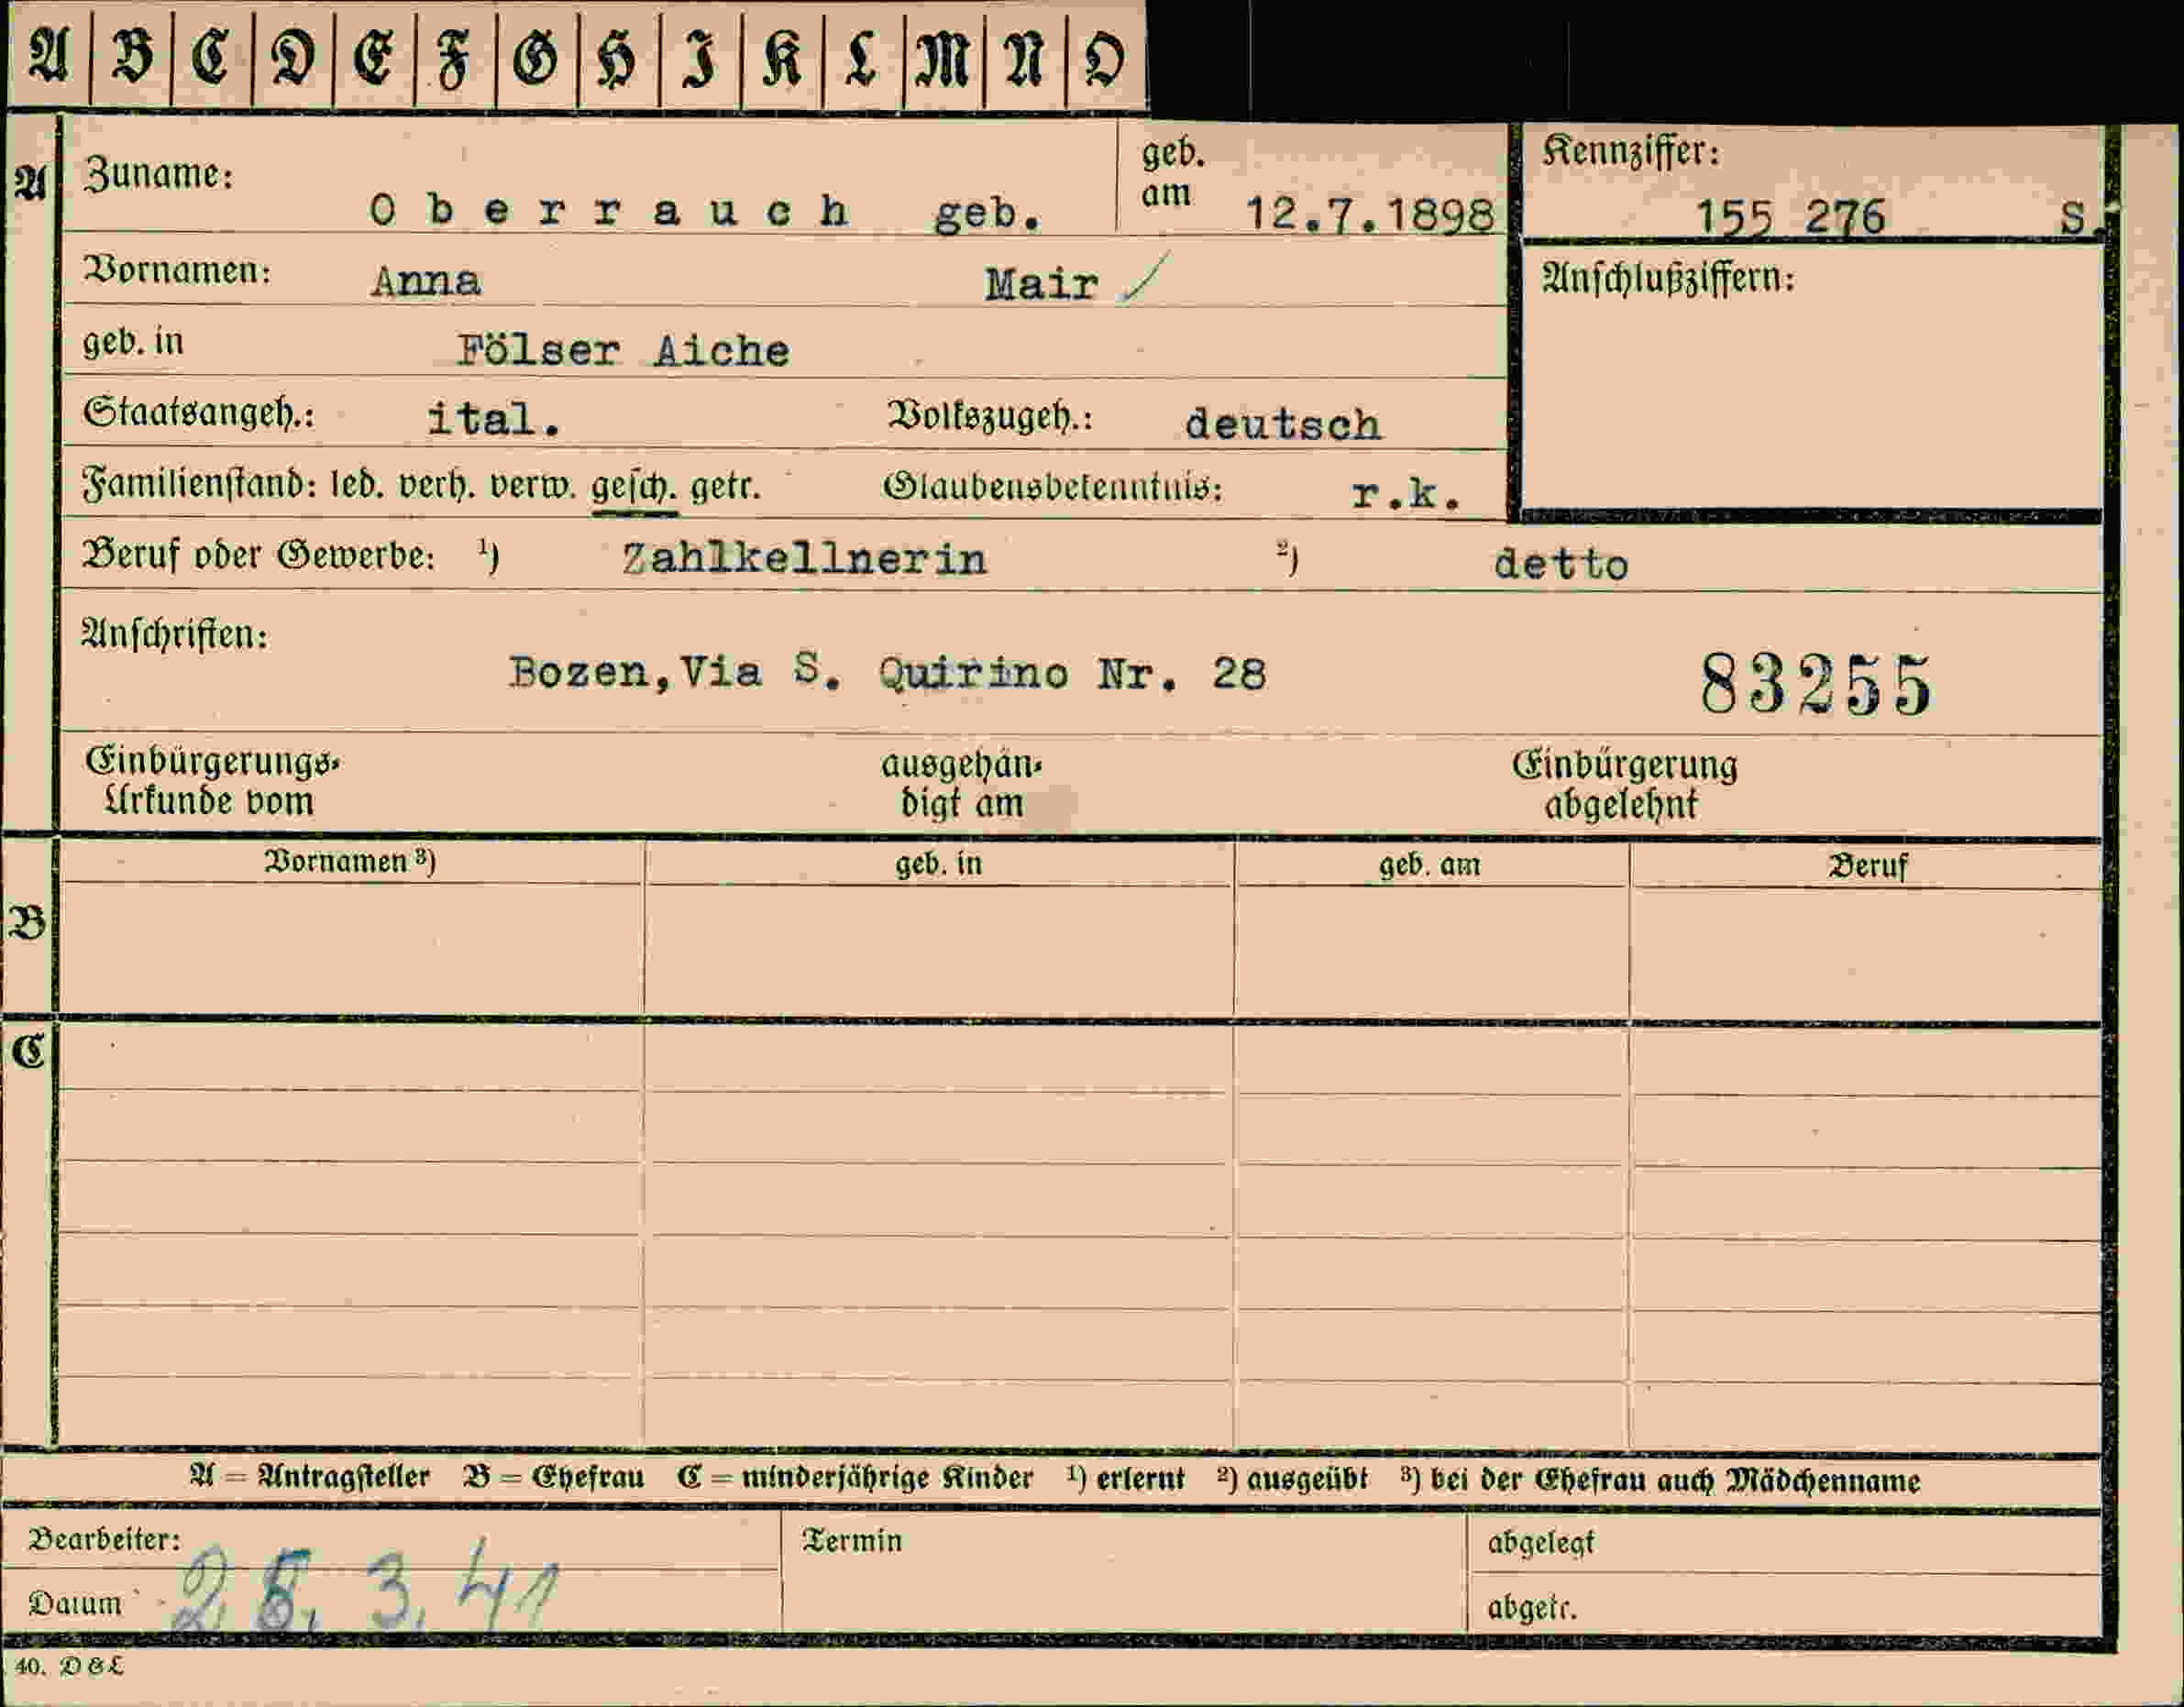 A B C D E F G H I K L M N O
A Zuname: Oberrauch geb. geb. am 12.7.1898 Kennziffer: 155 276 S.
Vornamen: Anna Mair / Anschlußziffern:
geb. in Fölser Aiche
Staatsangeh.: ital. Volkszugeh.: deutsch
Familienstand: led. verh. verw. gesch. getr. Glaubensbekenntnis: r.k.
Beruf oder Gewerbe: 1) Zahlkellnerin 2) detto
Anschriften:
Bozen, Via S. Quirino Nr. 28 83255
Einbürgerungs- ausgehän- Einbürgerung
Urkunde vom digt am abgelehnt
Vornamen 3) geb. in geb. am Beruf
B
C
A = Antragsteller B = Ehefrau C = minderjährige Kinder 1) erlernt 2) ausgeübt 3) bei der Ehefrau auch Mädchenname
Bearbeiter: Termin abgelegt
Datum 3. 41 abgetr.
40. D&L